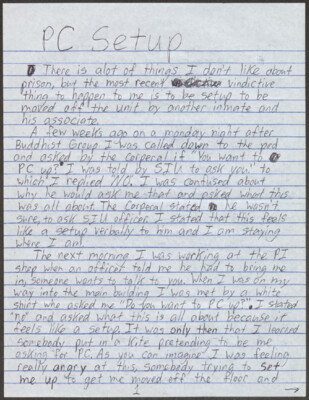 PC Setup
There is alot of things I don't like about
prison, but the most recent vindictive
thing to happen to me is to be setup to be
moved off the unit by another inmate and
his associate.
A few weeks ago on a monday night after
Buddhist Group I was called down to the pod
and asked by the Corperal if "You want to
PC up?" "I was told by SIU to ask you." to
which I replied "NO. I was confused about
why he would ask me that and asked what this
was all about. The Corperal stated he wasn't
sure, to ask SIU officer. I stated that this feels
like a setup verbally to him and I am staying
where I am.
The next morning I was working at the PI
shop when an officer told me he had to bring me
in, someone wants to talk to you. When I was on my
way into the main building I was met by a white
shirt who asked me "Do you want to PC up?". I stated
"no" and asked what this is all about because it
feels like a setup. It was only then that I learned
somebody put in a Kite pretending to be me
asking for PC. As you can imagine I was feeling
really angry at this, somebody trying to set
me up to get me moved off the floor and
1 →